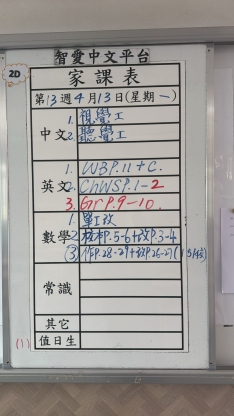 智愛中文平台
2D
家課表
第13週4月13日(星期一)
中文
1. 視覺工
2. 聽覺工
英文
1. WBP.11+C.
2. ChWSP.1-2
3. GrP.9-10.
數學
1. 單工改
2. P.5-6+改P.3-4
③ 作P.28-29+改P.26-27
常識
其它
(1)
值日生